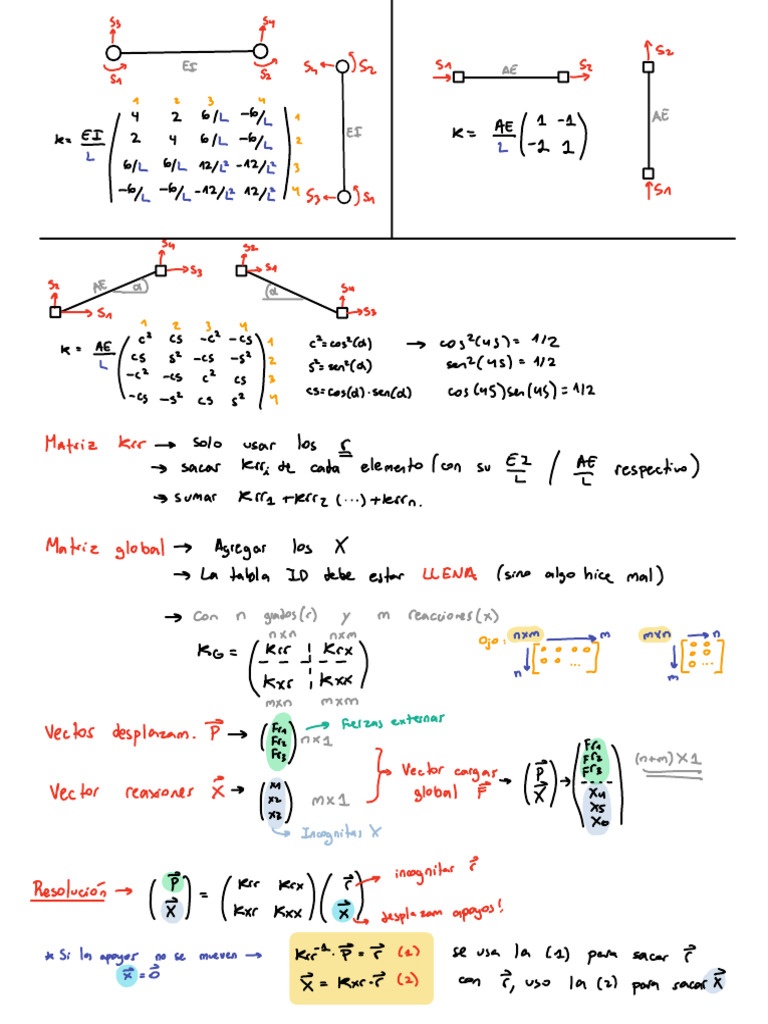 S3 S4
S1 EI S2
S4 S2
EI
S3 S1
1 2 3 4
K = EI/L ( 4 2 6/L -6/L ) 1
( 2 4 6/L -6/L ) 2
( 6/L 6/L 12/L² -12/L² ) 3
( -6/L -6/L -12/L² 12/L² ) 4
S1 AE S2
S2
AE
S1
K = AE/L ( 1 -1 )
( -1 1 )
S4
S2 AE α S3
S1
S2
S1 α S4
S3
1 2 3 4
K = AE/L ( c² cs -c² -cs ) 1
( cs s² -cs -s² ) 2
( -c² -cs c² cs ) 3
( -cs -s² cs s² ) 4
c² = cos²(α) → cos²(45) = 1/2
s² = sen²(α) sen²(45) = 1/2
cs = cos(α)·sen(α) cos(45)sen(45) = 1/2
Matriz Krr → solo usar los r
→ sacar Krri de cada elemento (con su EI/L / AE/L respectivo)
→ sumar Krr1 + Krr2 (...) + Krrn.
Matriz global → Agregar los X
→ La tabla ID debe estar LLENA (sino algo hice mal)
→ Con n grados(r) y m reacciones(x)
nxn nxm
KG = ( Krr Krx )
( Kxr Kxx )
mxn mxm
Ojo: nxm → m
n
mxn → n
m
Vectos desplazam. P → ( Fr1 Fr2 Fr3 ) nx1 → Ferzas externar
Vector reaxiones X → ( X1 X2 X3 ) mx1
→ Incognitas X
Vector cargas global F → ( P X ) → ( Fr1 Fr2 Fr3 X4 X5 X6 ) (n+m)x1
Resolución → ( P ) = ( Krr Krx ) ( r ) → incognitar r
( X ) ( Kxr Kxx ) ( x ) → desplazam apoyos!
* Si los apoyos no se mueven →
x = 0
Krr⁻¹ · P = r (1)
X = Kxr · r (2)
se usa la (1) para sacar r
con r, uso la (2) para sacar X